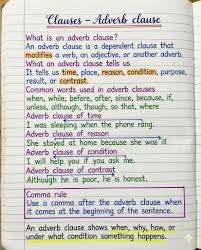 Clauses - Adverb clause
What is an adverb clause?
An adverb clause is a dependent clause that
modifies a verb, an adjective, or another adverb.
What an adverb clause tells us
It tells us time, place, reason, condition, purpose,
result, or contrast.
Common words used in adverb clauses
when, while, before, after, since, because, if,
unless, although, though, so that, where
Adverb clause of time
I was sleeping when the phone rang.
Adverb clause of reason
She stayed at home because she was ill.
Adverb clause of condition
I will help you if you ask me.
Adverb clause of contrast
Although he is poor, he is honest.
Comma rule
Use a comma after the adverb clause when
it comes at the beginning of the sentence.
An adverb clause shows when, why, how, or
under what condition something happens.